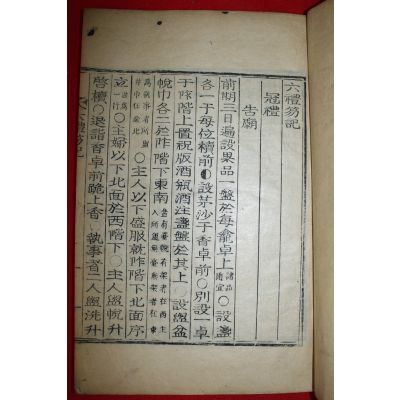 六禮笏記
冠禮
告廟
前期三日遍設果品一盤於每龕卓上 〇設盞
各一于每位櫝前〇設茅沙于香卓前〇別設一卓
于阼階上置祝版酒瓶酒注盞盤於其上〇設盥盆
帨巾各二於阼階下東南
〇主人以下盛服就阼階下北面序
立 〇主婦以下北面於西階下〇主人盥帨升
啓櫝〇退詣香卓前跪上香 執事者二人盥洗升
六禮笏記